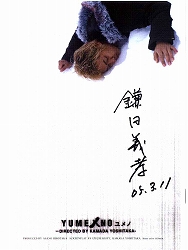 鎌田義孝
05.3.11
YUMENO ユメノ
-DIRECTED BY KAMADA YOSHITAKA-